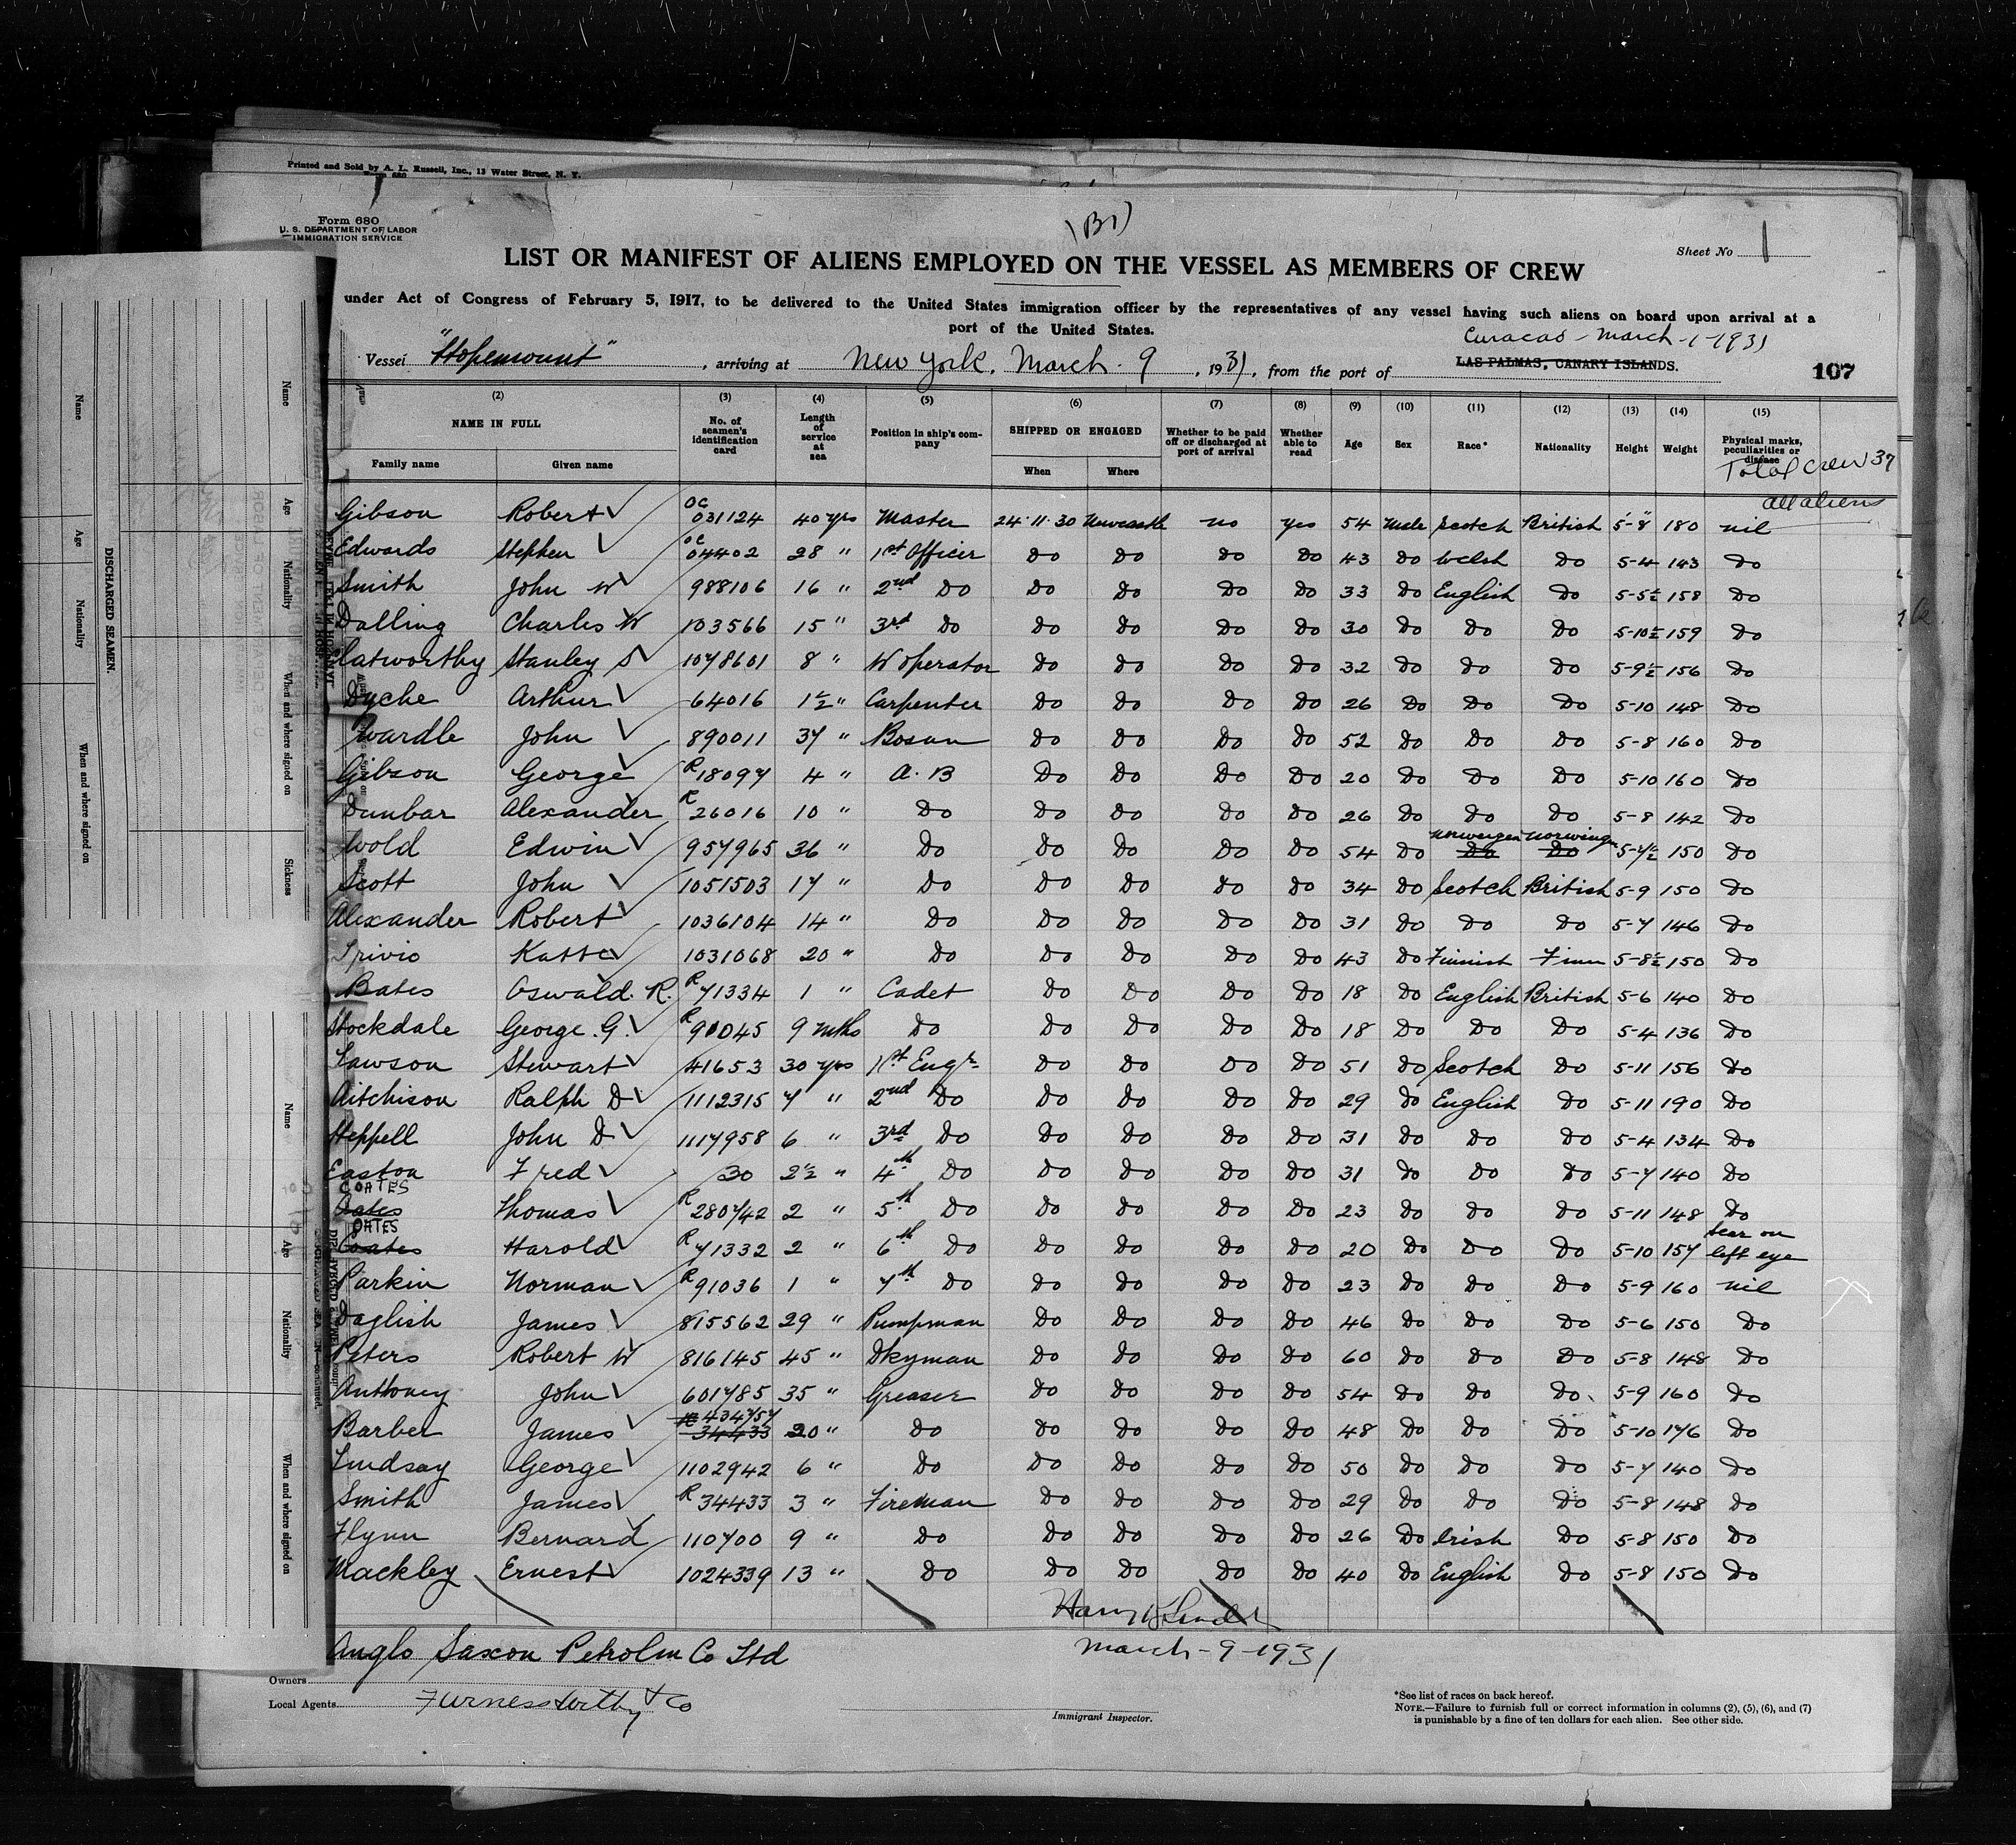 Printed and Sold by A. L. Russell, Inc., 13 Water Street, N. Y.
Form 680
U. S. DEPARTMENT OF LABOR
IMMIGRATION SERVICE
Sheet No 1
LIST OR MANIFEST OF ALIENS EMPLOYED ON THE VESSEL AS MEMBERS OF CREW
under Act of Congress of February 5, 1917, to be delivered to the United States immigration officer by the representatives of any vessel having such aliens on board upon arrival at a
port of the United States.
Curacao - March - 1 - 1931
Vessel "Hopemount", arriving at New York, March 9, 1931, from the port of LAS PALMAS, CANARY ISLANDS.
107
(2) (3) (4) (5) (6) (7) (8) (9) (10) (11) (12) (13) (14) (15)
NAME IN FULL No. of seamen's identification card Length of service at sea Position in ship's company SHIPPED OR ENGAGED Whether to be paid off or discharged at port of arrival Whether able to read Age Sex Race* Nationality Height Weight Physical marks, peculiarities or disease
Family name Given name When Where
Total Crew 37
all aliens
Gibson Robert OC 031124 40 yrs Master 24-11-30 Newcastle no yes 54 Male Scotch British 5'-8" 180 nil
Edwards Stephen OC 04402 28 " 1st Officer Do Do Do Do 43 Do Welsh Do 5-4 143 Do
Smith John W 988106 16 " 2nd Do Do Do Do Do 33 Do English Do 5-5½ 158 Do
Dalling Charles W 103566 15 " 3rd Do Do Do Do Do 30 Do Do Do 5-10½ 159 Do
Catworthy Stanley S 1078601 8 " W operator Do Do Do Do 32 Do Do Do 5-9½ 156 Do
Dyche Arthur 64016 1½ " Carpenter Do Do Do Do 26 Do Do Do 5-10 148 Do
Wardle John 890011 37 " Bosun Do Do Do Do 52 Do Do Do 5-8 160 Do
Gibson George R 18097 4 " A. B Do Do Do Do 20 Do Do Do 5-10 160 Do
Dunbar Alexander R 26016 10 " Do Do Do Do Do 26 Do Do Do 5-8 142 Do
Wold Edwin 957965 36 " Do Do Do Do Do 54 Do Do Do 5-7½ 150 Do
Scott John 1051503 17 " Do Do Do Do Do 34 Do Scotch British 5-9 150 Do
Alexander Robert 1036104 14 " Do Do Do Do Do 31 Do Do Do 5-7 146 Do
Trivio 1031068 20 " Do Do Do Do Do 43 Do Finnish Finn 5-8½ 150 Do
Bates Oswald. R. R 71334 1 " Cadet Do Do Do Do 18 Do English British 5-6 140 Do
Stockdale George. G. R 90045 9 mths Do Do Do Do Do 18 Do Do Do 5-4 136 Do
Lawson Stewart 41653 30 yrs 1st Engr Do Do Do Do 51 Do Scotch Do 5-11 156 Do
Aitchison Ralph D 1112315 7 " 2nd Do Do Do Do Do 29 Do English Do 5-11 190 Do
Heppell John D 1117958 6 " 3rd Do Do Do Do Do 31 Do Do Do 5-4 134 Do
Easton Fred 30 2½ " 4th Do Do Do Do Do 31 Do Do Do 5-7 140 Do
COATES
Oates Thomas R 280742 2 " 5th Do Do Do Do Do 23 Do Do Do 5-11 148 Do
OATES
Coates Harold R 71332 2 " 6th Do Do Do Do Do 20 Do Do Do 5-10 157 Scar on left eye
Parkin Norman R 91036 1 " 7th Do Do Do Do Do 23 Do Do Do 5-9 160 nil
Daglish James 815562 29 " Pumpman Do Do Do Do 46 Do Do Do 5-6 150 Do
Peters Robert W 816145 45 " Dkyman Do Do Do Do 60 Do Do Do 5-8 148 Do
Anthoney John 601785 35 " Greaser Do Do Do Do 54 Do Do Do 5-9 160 Do
434757
Barber James 34433 20 " Do Do Do Do Do 48 Do Do Do 5-10 176 Do
Lindsay George 1102942 6 " Do Do Do Do Do 50 Do Do Do 5-7 140 Do
Smith James R 34433 3 " Fireman Do Do Do Do 29 Do Do Do 5-8 148 Do
Flynn Bernard 110700 9 " Do Do Do Do Do 26 Do Irish Do 5-8 150 Do
Mackley Ernest 1024339 13 " Do Do Do Do Do 40 Do English Do 5-8 150 Do
March - 9 - 1931
Anglo Saxon Petrolm Co Ltd
Owners
Local Agents Furness Withy & Co
Immigrant Inspector.
*See list of races on back hereof.
NOTE.—Failure to furnish full or correct information in columns (2), (5), (6), and (7)
is punishable by a fine of ten dollars for each alien. See other side.
DISCHARGED SEAMEN.
Name
Age
Nationality
When and where signed on
Name
Age
Nationality
When and where signed on
Sickness
Name
Age
Nationality
When and where signed on